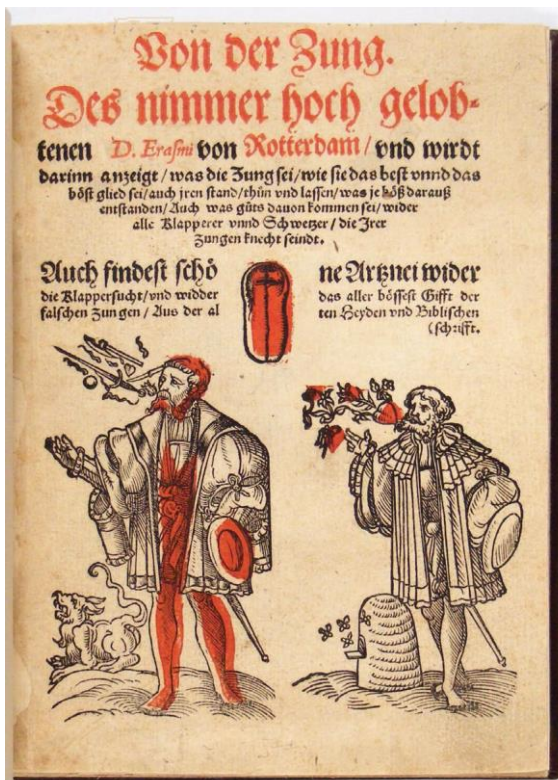 Von der Zung.
Des nimmer hoch gelob⸗
tenen D. Erasmi von Rotterdam / vnd wirdt
darinn anzeigt / was die Zung sei / wie sie das best vnnd das
böst glied sei / auch jren stand / thün vnd lassen / was je böß darauß
entstanden / Auch was gůts dauon kommen sei / wider
alle Klapperer vnnd Schwetzer / die Irer
Zungen knecht seindt.
Auch findest schö ne Artznei wider
die Klappersucht / vnd widder das aller bössest Gifft der
falschen Zungen / Aus der al ten Heyden vnd Biblischen
(schrifft.